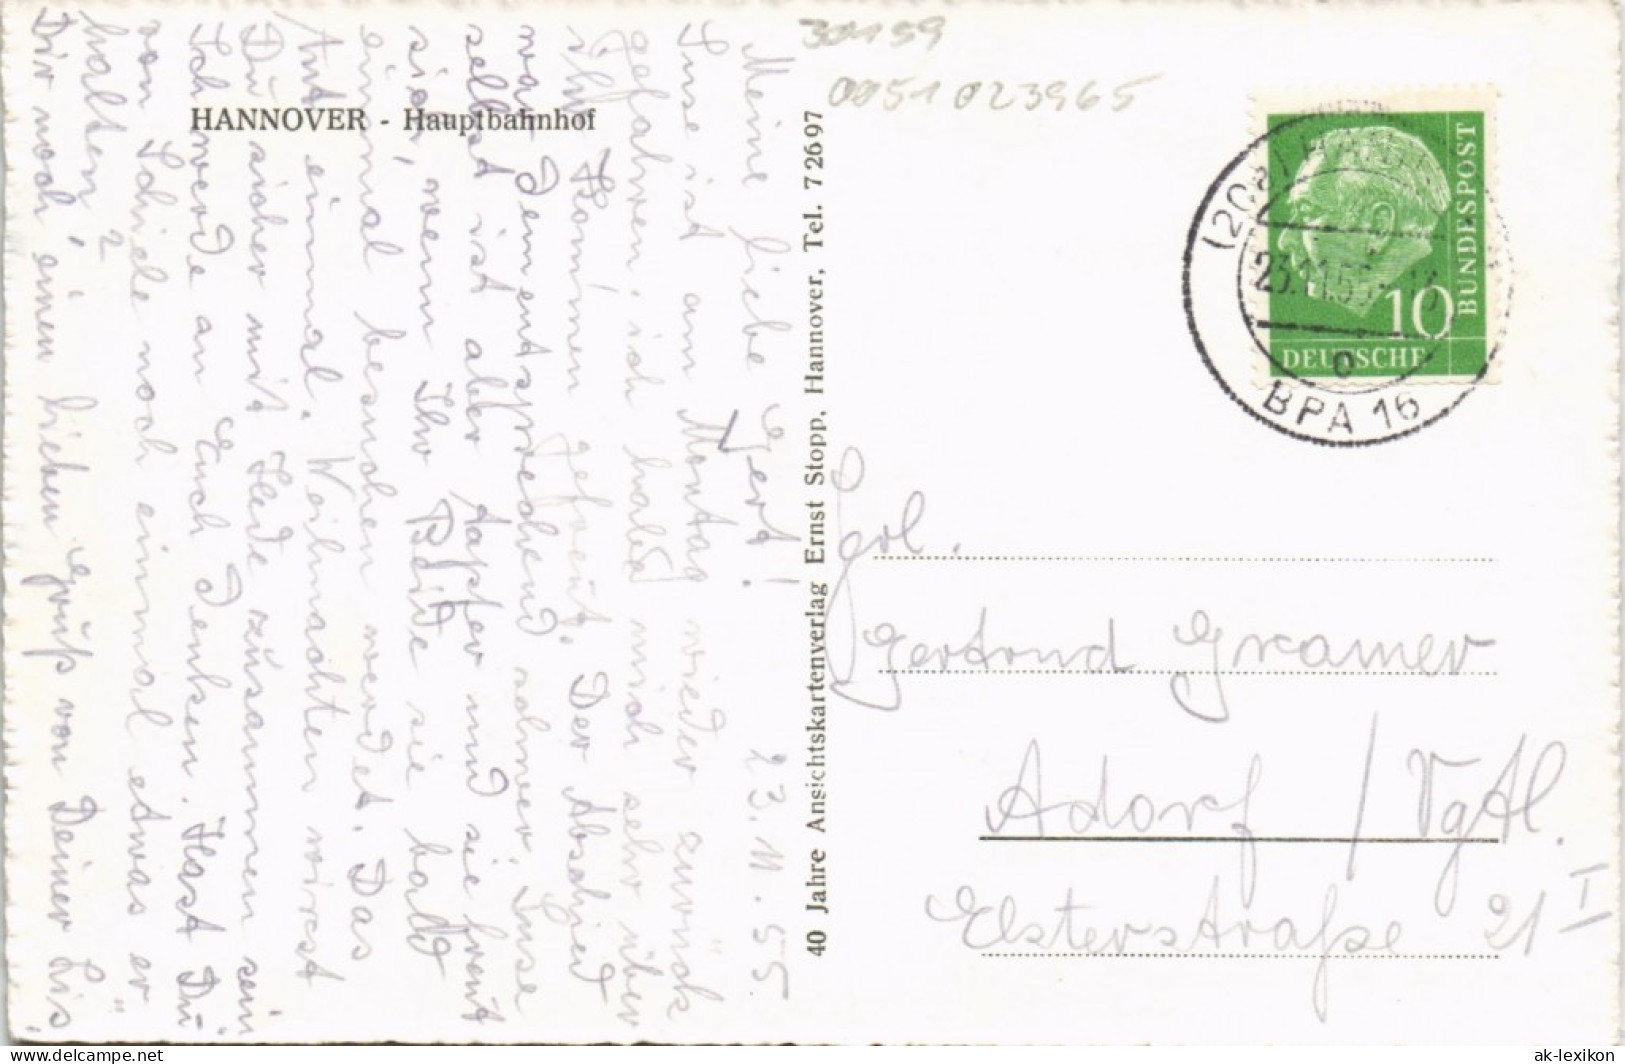 30159
0051023965
HANNOVER - Hauptbahnhof
23.11.55.
Meine liebe Gert!
Luse ist am Montag wieder zurück
gefahren, ich habe mich sehr über
ihr Kommen gefreut. Der Abschied
war dementsprechend schwer. Luse
selbst ist aber tapfer und sie freut
sich, wenn Ihr Beide sie bald
einmal besuchen werdet. Das
tut einmal. Weihnachten wirst
Du sicher mit Hede zusammen sein
Ich werde an Euch denken. Hast Du
von Schiele noch einmal etwas er-
halten?
Dir noch einen lieben Gruß von Deiner Lis
40 Jahre Ansichtskartenverlag Ernst Stopp, Hannover, Tel. 72697
BUNDESPOST
10
DEUTSCHE
(20a) HANNOVER
23.11.55-18
o
BPA 16
Frl.
Gertrud Gramer
Adorf / Vgtl.
Elsterstraße 21 I
ak-lexikon